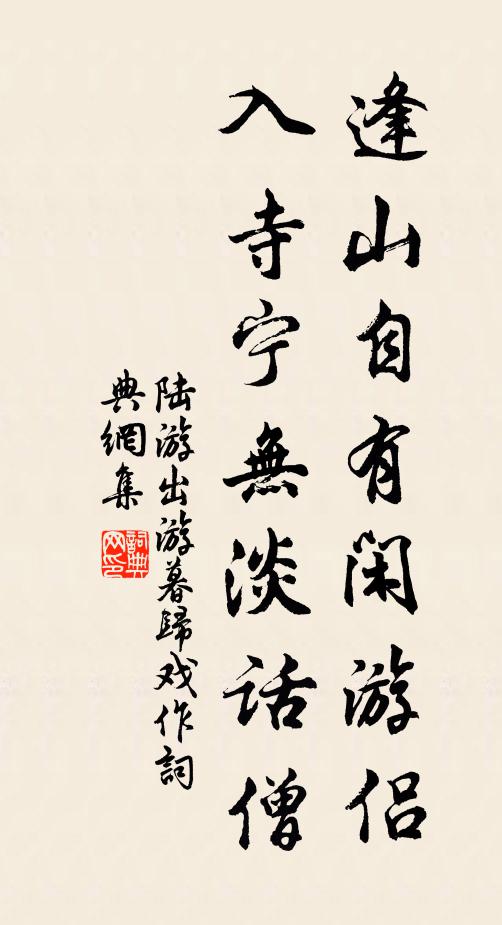 逢山自有閑游侣
入寺宁無淡话僧
陆游出游暮歸戏作詞
典網集
詞典
网印